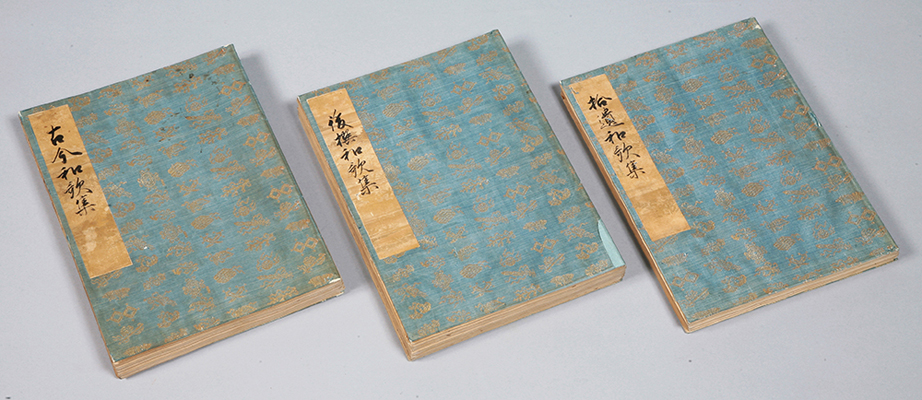 古今和歌集
後撰和歌集
拾遺和歌集